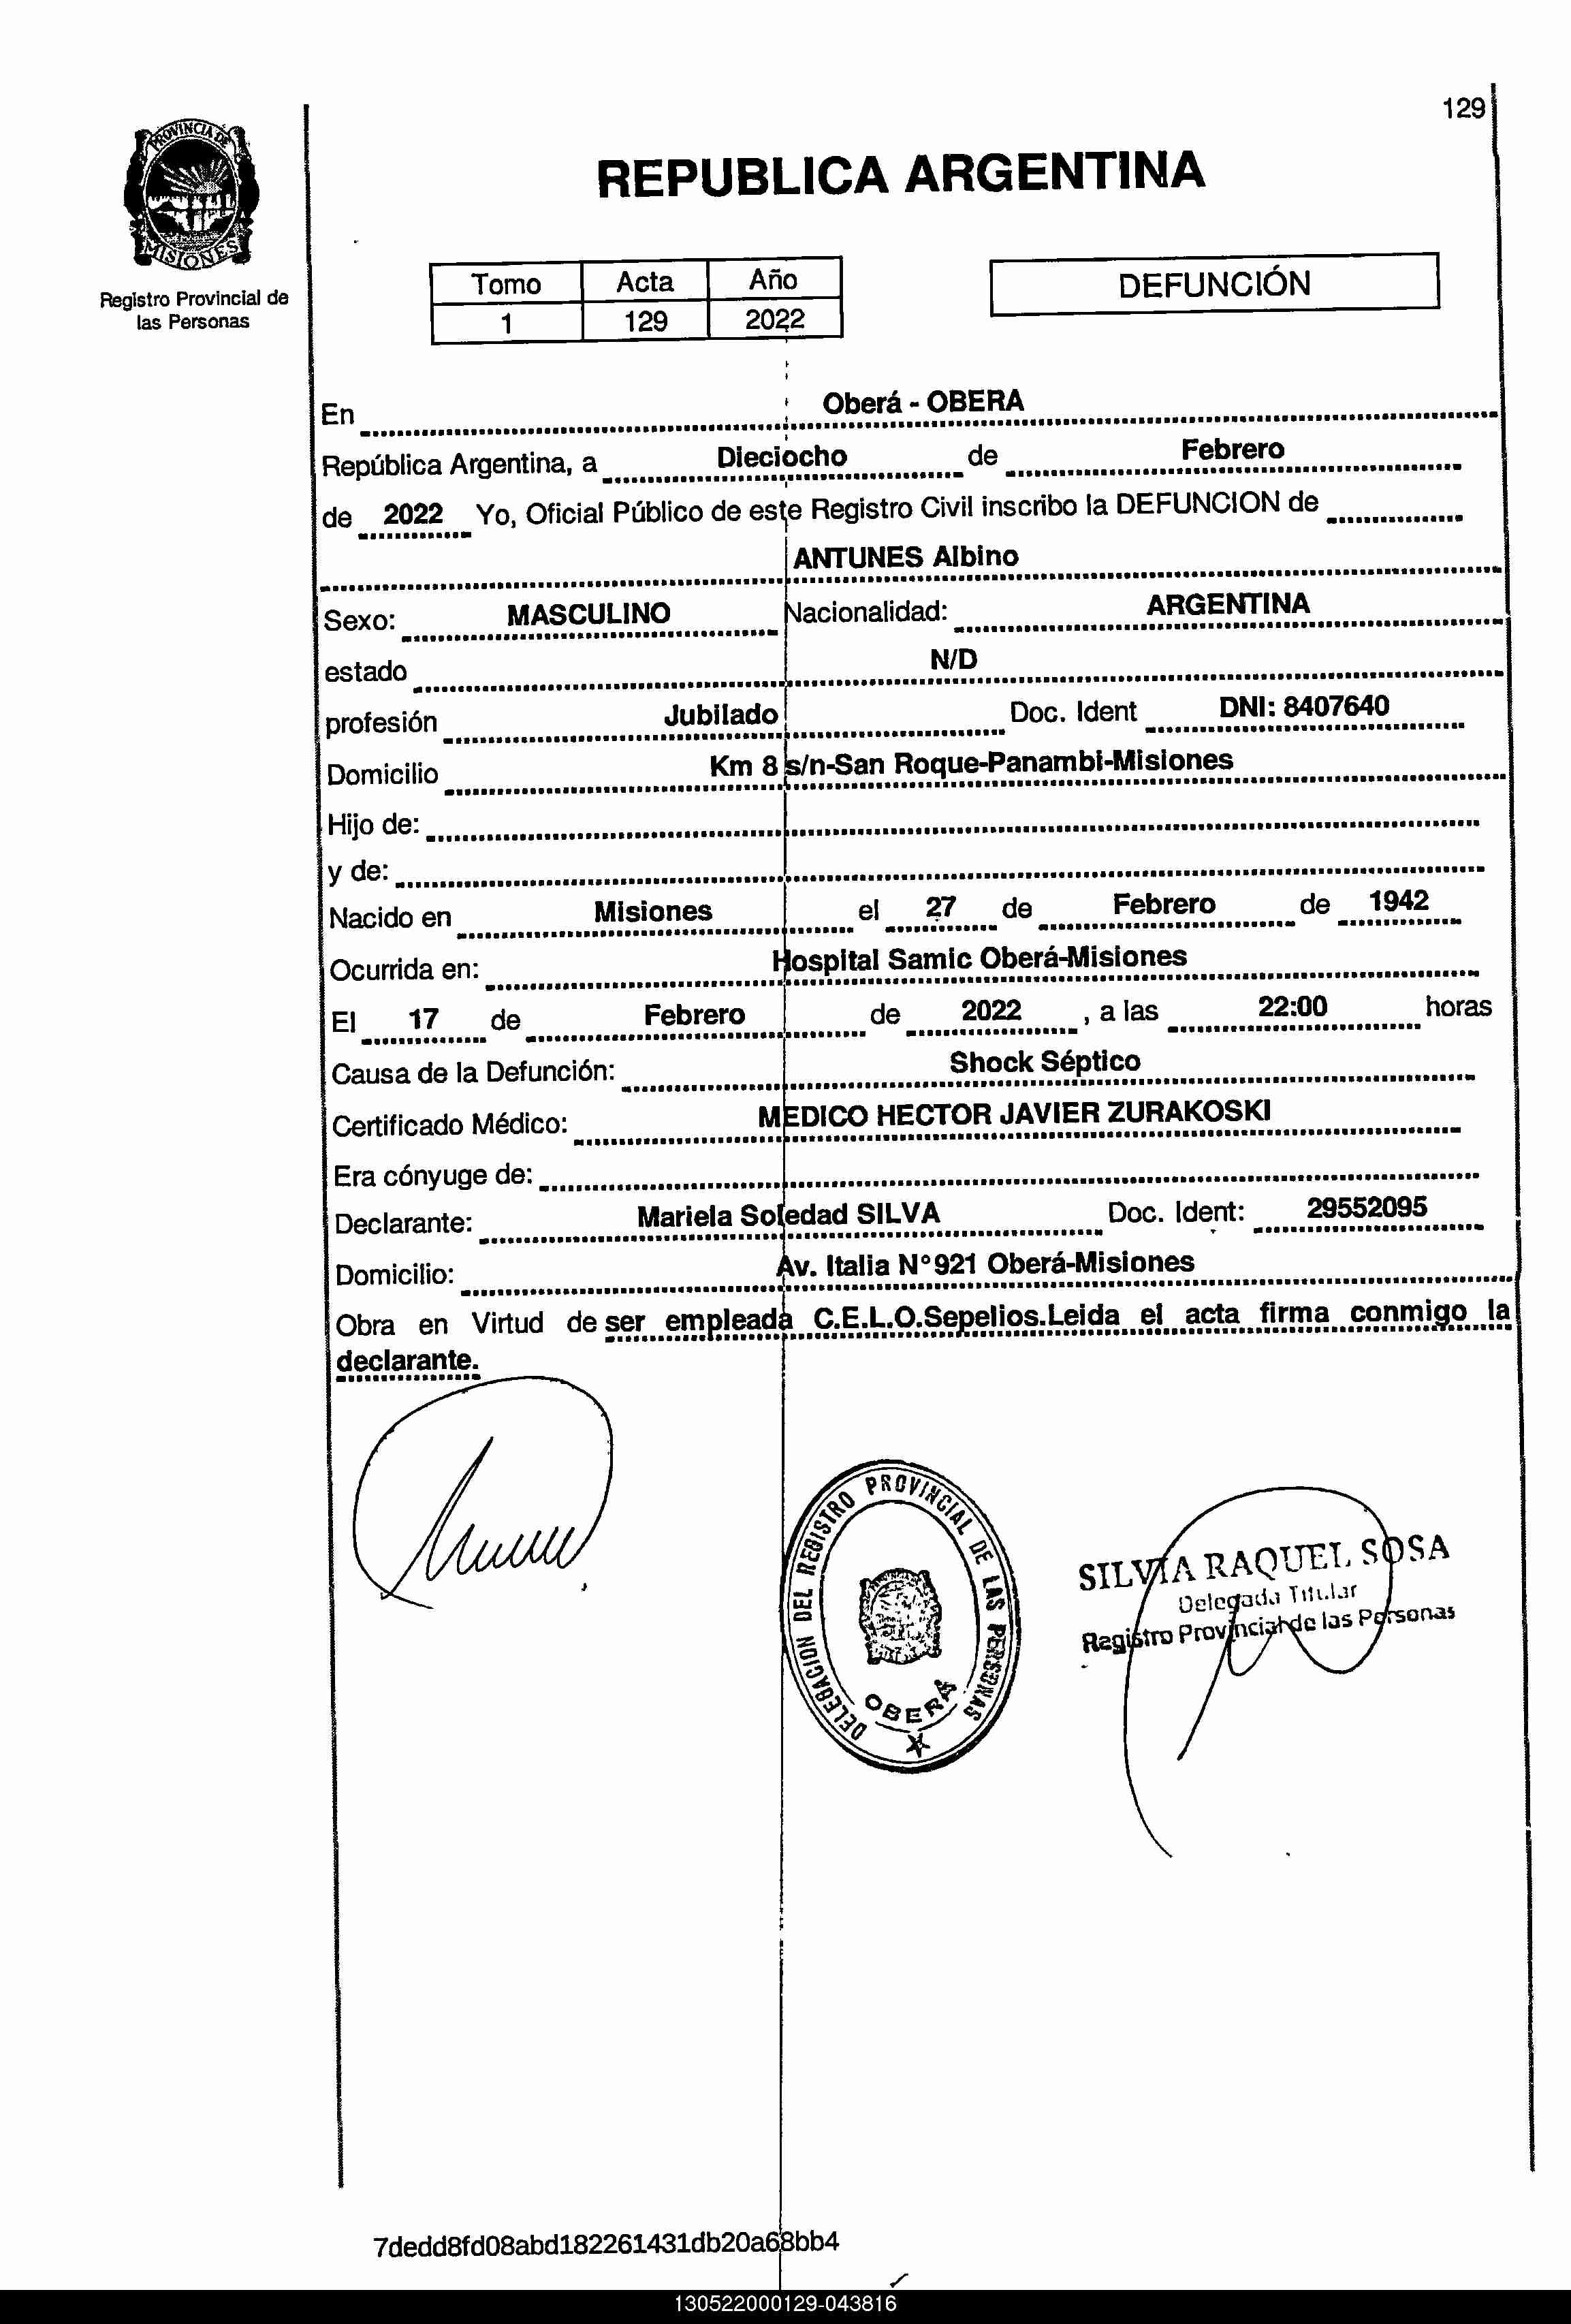 129
PROVINCIA DE
MISIONES
Registro Provincial de
las Personas
REPUBLICA ARGENTINA
Tomo Acta Año
1 129 2022
DEFUNCIÓN
En Oberá - OBERA
República Argentina, a Dieciocho de Febrero
de 2022 Yo, Oficial Público de este Registro Civil inscribo la DEFUNCION de
ANTUNES Albino
Sexo: MASCULINO Nacionalidad: ARGENTINA
estado N/D
profesión Jubilado Doc. Ident DNI: 8407640
Domicilio Km 8 s/n-San Roque-Panambi-Misiones
Hijo de:
y de:
Nacido en Misiones el 27 de Febrero de 1942
Ocurrida en: Hospital Samic Oberá-Misiones
El 17 de Febrero de 2022 , a las 22:00 horas
Causa de la Defunción: Shock Séptico
Certificado Médico: MEDICO HECTOR JAVIER ZURAKOSKI
Era cónyuge de:
Declarante: Mariela Soledad SILVA Doc. Ident: 29552095
Domicilio: Av. Italia N°921 Oberá-Misiones
Obra en Virtud de ser empleada C.E.L.O.Sepelios.Leida el acta firma conmigo la
declarante.
DELEGACION DEL REGISTRO PROVINCIAL DE LAS PERSONAS
OBERÁ
SILVIA RAQUEL SOSA
Delegada Titular
Registro Provincial de las Personas
7dedd8fd08abd182261431db20a68bb4
130522000129-043816